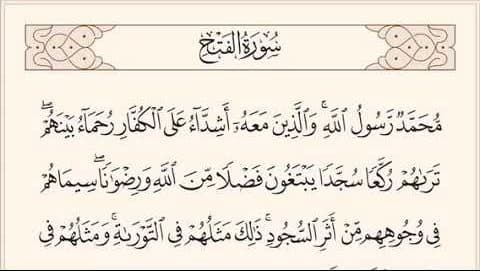 سُورَةُ الفَتْحِ
مُّحَمَّدٌ رَّسُولُ ٱللَّهِ ۚ وَٱلَّذِينَ مَعَهُۥٓ أَشِدَّآءُ عَلَى ٱلْكُفَّارِ رُحَمَآءُ بَيْنَهُمْ ۖ
تَرَىٰهُمْ رُكَّعًا سُجَّدًا يَبْتَغُونَ فَضْلًا مِّنَ ٱللَّهِ وَرِضْوَٰنًا ۖ سِيمَاهُمْ
فِى وُجُوهِهِم مِّنْ أَثَرِ ٱلسُّجُودِ ۚ ذَٰلِكَ مَثَلُهُمْ فِى ٱلتَّوْرَىٰةِ ۚ وَمَثَلُهُمْ فِى